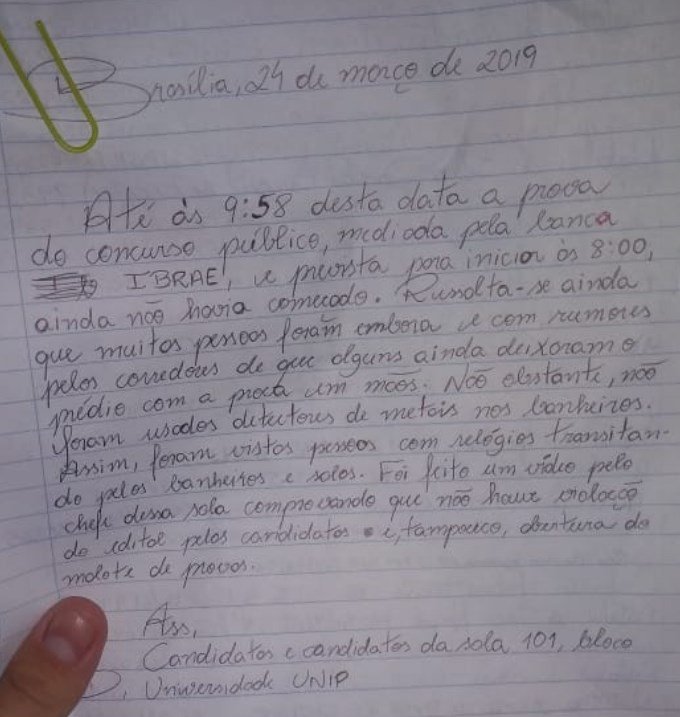 Brasília, 24 de março de 2019
Até às 9:58 desta data a prova
do concurso público, mediada pela banca
IBRAE, e prevista para iniciar às 8:00,
ainda não havia começado. Ressalta-se ainda
que muitas pessoas foram embora e com rumores
pelos corredores de que alguns ainda deixaram o
prédio com a prova em mãos. Não obstante, não
foram usados detectores de metais nos banheiros.
Assim, foram vistas pessoas com relógios transitan-
do pelos banheiros e salas. Foi feito um vídeo pelo
chefe dessa sala comprovando que não houve violação
do edital pelos candidatos e, tampouco, abertura do
malote de provas.
Ass,
Candidatos e candidatas da sala 101, bloco
D, Universidade UNIP